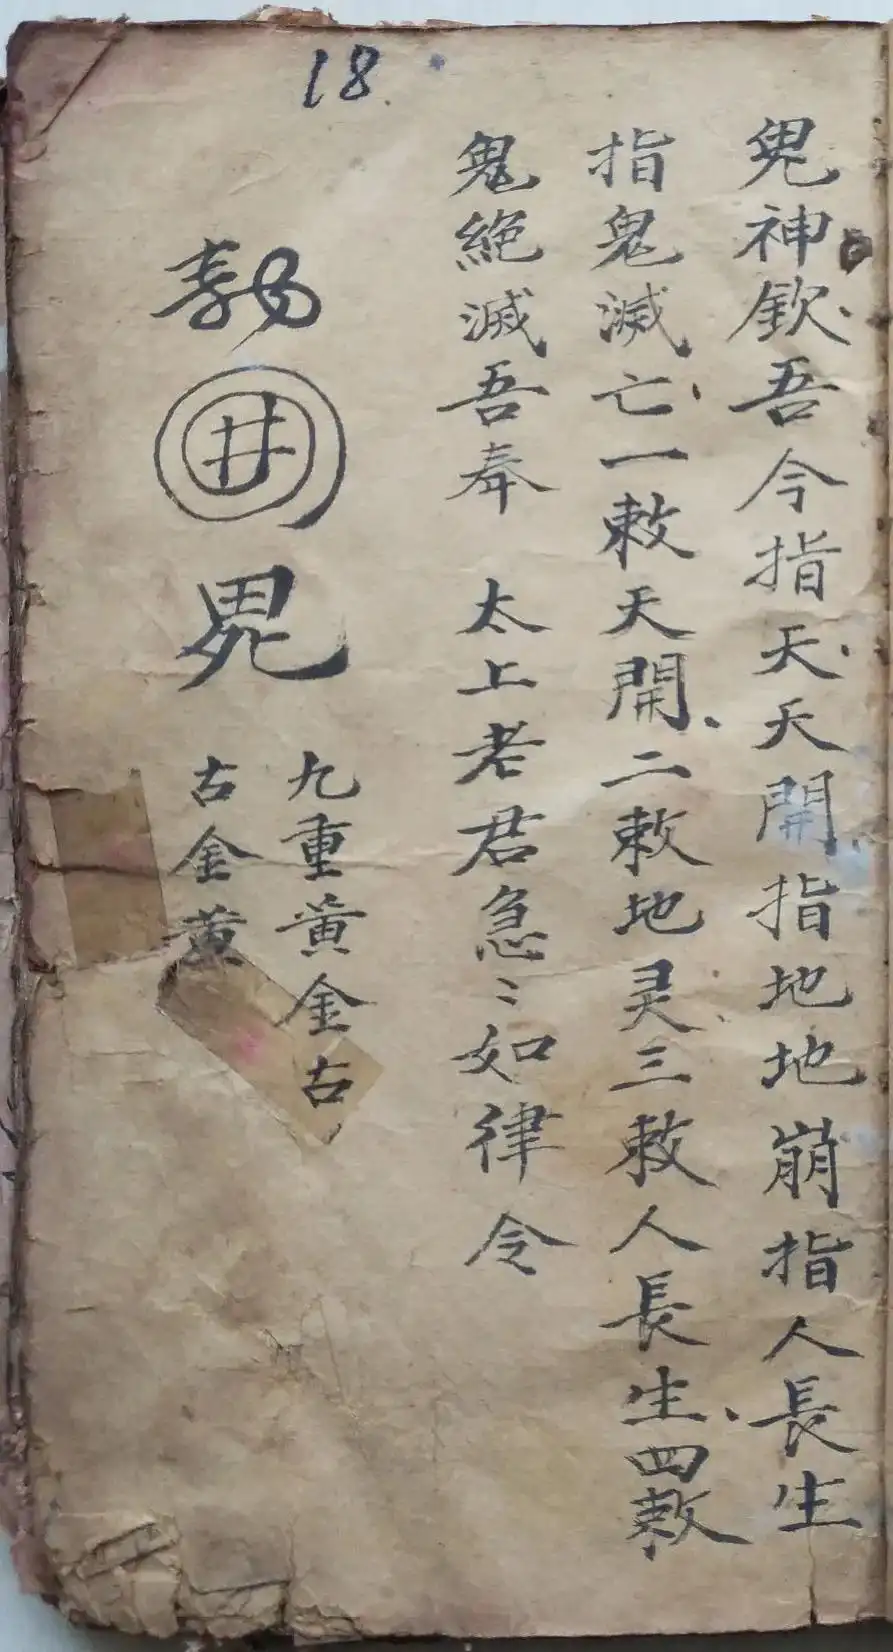 18
鬼神欽吾今指天天開指地地崩指人長生
指鬼滅亡一敕天開二敕地灵三敕人長生四敕
鬼絕滅吾奉 太上老君急〻如律令
井
九重黄金古
古金黄